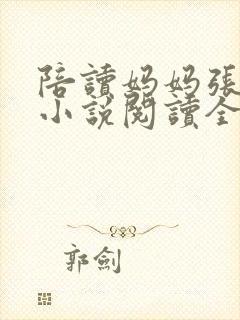 陪讀媽媽張
小說閱讀全
郭劍